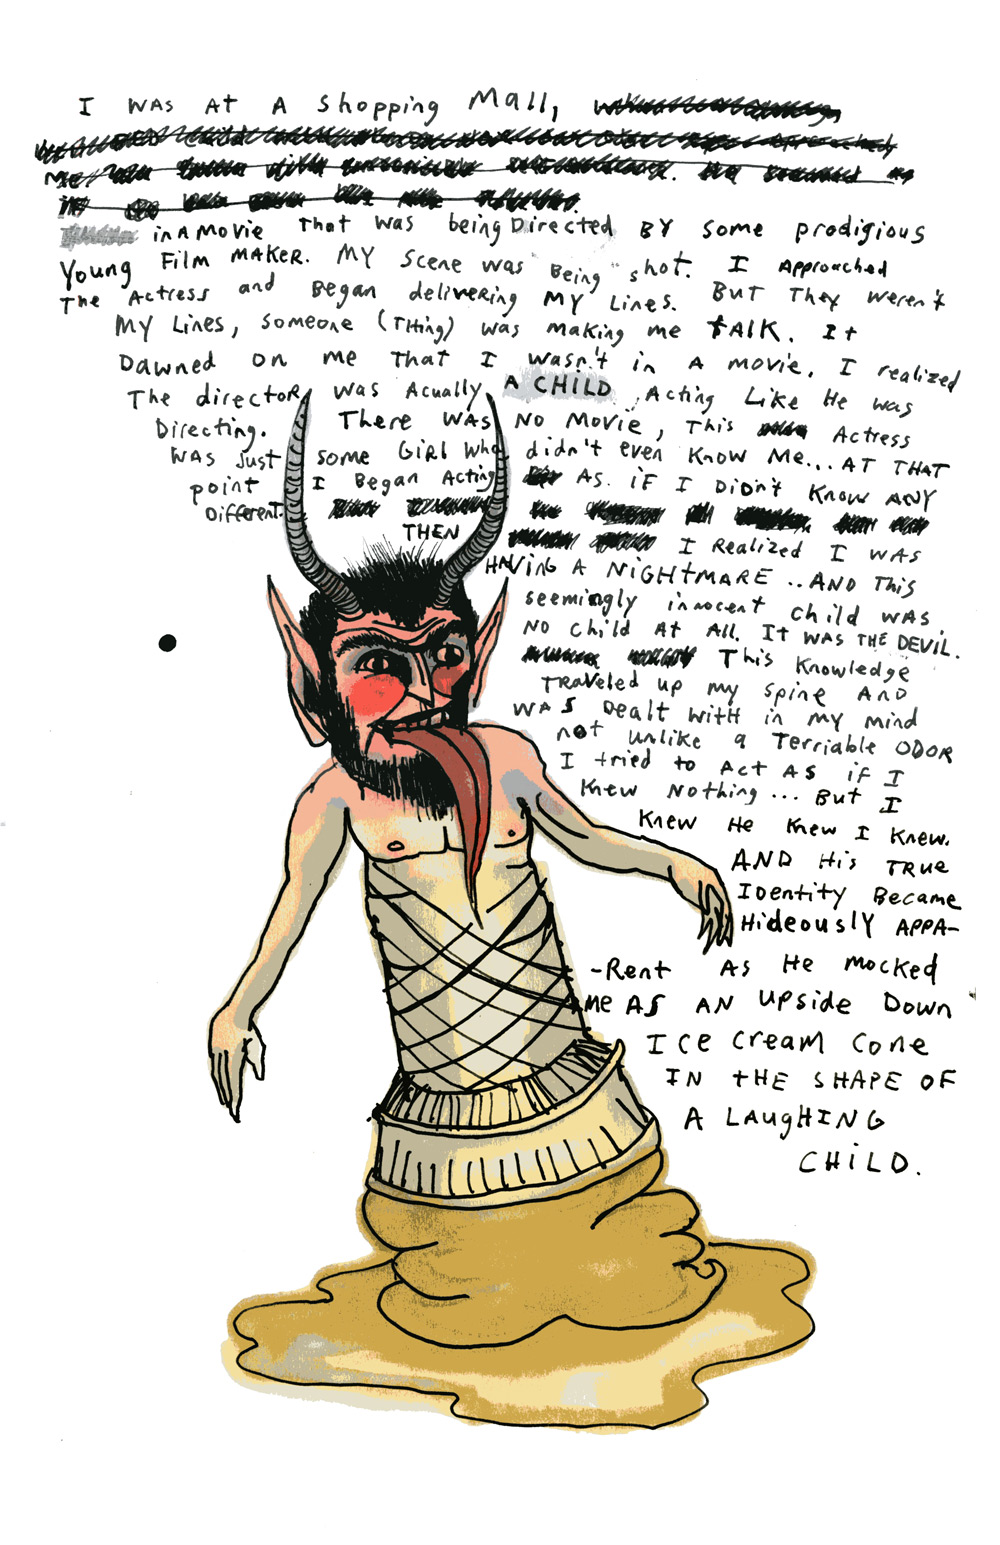 I WAS AT A Shopping Mall,
in A Movie That was being Directed BY some prodigious
Young Film MAKER. MY Scene was Being shot. I Approached
The Actress and Began delivering MY Lines. BUT They weren't
MY Lines, Someone (THing) was making me tAlK. It
DAWNED on me That I wasn't in A movie. I realized
The director was Acually A CHILD, Acting Like He was
Directing. There WAS NO Movie, This Actress
WAS Just some Girl Who didn't even Know Me... AT THAT
point I Began Acting AS. iF I DiDn't Know ANY
Different.
THEN I Realized I WAS
HAViNG A NiGHtMARE .. AND This
seemingly innocent child WAS
NO Child At All. IT WAS THE DEVIL.
This Knowledge
TRAVeled up my spine AND
WAS Dealt with in my mind
not unlike a Terriable ODOR
I tried to Act AS if I
Knew Nothing ... But I
Knew He Knew I Knew.
AND His TRue
IDentity Became
Hideously APPA-
-Rent AS He Mocked
me AS AN Upside Down
ICe Cream Cone
IN tHE SHAPE OF
A LAugHING
CHiLD.